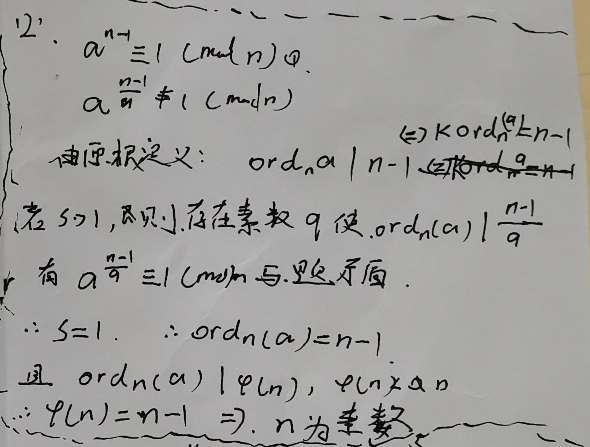 12'.
a^{n-1} ≡ 1 (mod n) ①.
a^{\frac{n-1}{q}} ≢ 1 (mod n)
由原根定义: ord_n a | n-1 ⇔ k ord_n(a) = n-1
若 s>1, 则 存在素数 q 使 ord_n(a) | \frac{n-1}{q}
有 a^{\frac{n-1}{q}} ≡ 1 (mod n 与 题 矛盾.
∴ s=1. ∴ ord_n(a) = n-1
且 ord_n(a) | φ(n), φ(n)
∴ φ(n) = n-1 ⇒. n 为素数